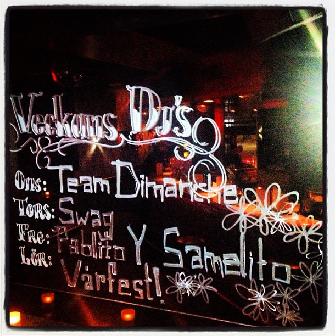 Veckans Dj's
Ons: Team Dimanche
Tors: Swag
Fre: Pablito Y Samelito
Lör: Vårfest!